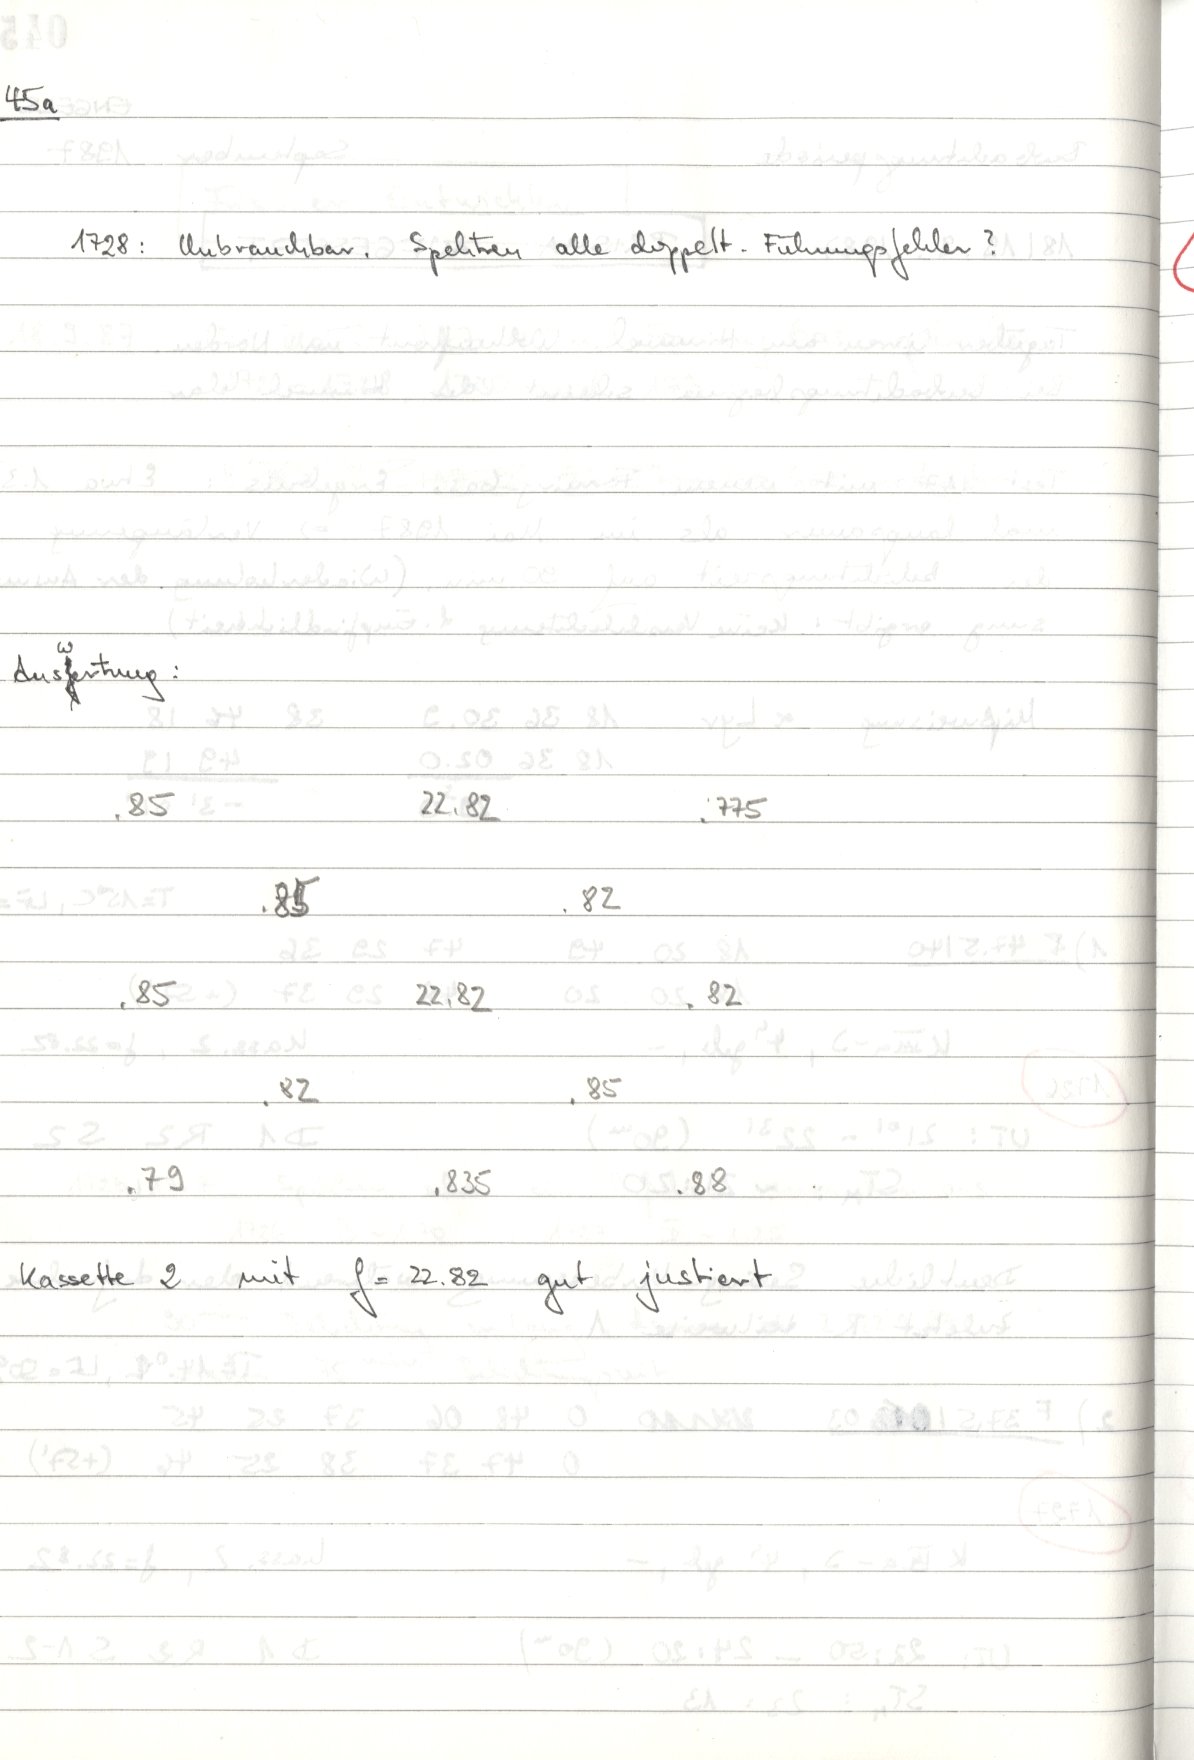 45a
1728: Unbrauchbar. Spektren alle doppelt. Führungsfehler?
Auswertung:
.85 22.82 .775
.85 .82
.85 22.82 .82
.82 .85
.79 .835 .88
Kassette 2 mit f = 22.82 gut justiert